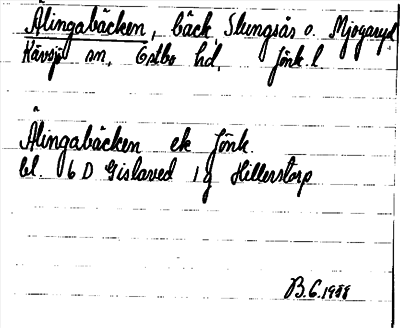 Ålingabäcken, bäck, Slungsås o. Mjogaryd
Kävsjö sn, Östbo hd, Jönk. l.
Ålingabäcken ek Jönk.
bl. 6 D Gislaved 1 g Hillerstorp
B.G. 1988